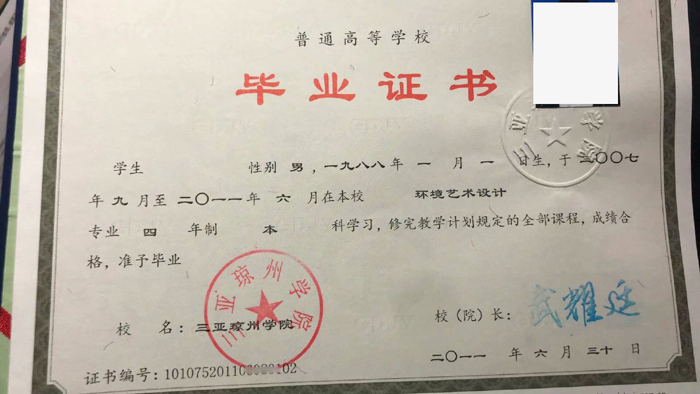 普通高等学校
毕业证书
三亚学院
学生 性别 男，一九八八年 一 月 一 日生，于 二〇〇七
年 九 月至 二〇一一 年 六 月在本校 环境艺术设计
专业 四 年制 本 科学习，修完教学计划规定的全部课程，成绩合
格，准予毕业
三亚琼州学院
校 名：三亚琼州学院
校（院）长：武耀廷
二〇一一 年 六 月 三十 日
证书编号：